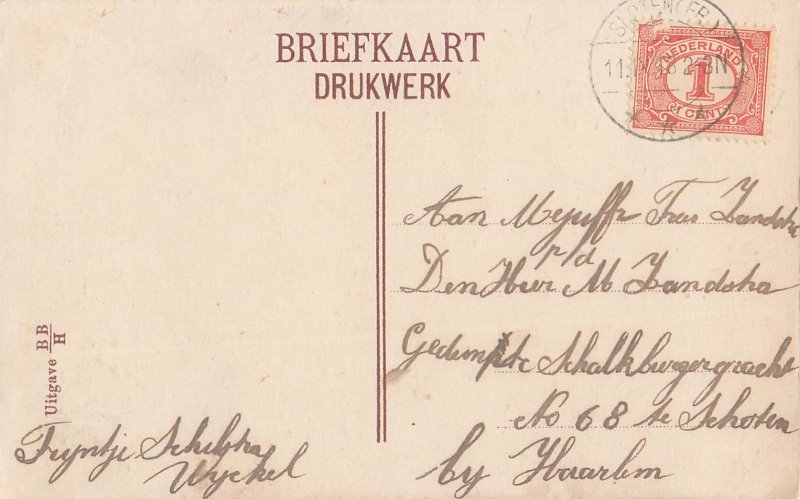 BRIEFKAART
DRUKWERK
SLOTEN (FR.)
11. 18 2-3N
NEDERLAND
1
CENT
Aan Mejuffr Trui Landstra
p/d
Den Heer M Landstra
Gedempte Schalkburgergracht
No 68 te Schoten
by Haarlem
Uitgave BB/H
Tryntje Schelstra
Wyckel